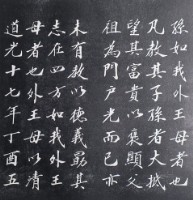 孫如我外王母者
凡教其子孫者大抵
望其富貴以褒顯父
祖為門戶光而已亦
未有教以德義窮其
志在四方如我外王
母者也外王母以清
道光十七年丁酉五